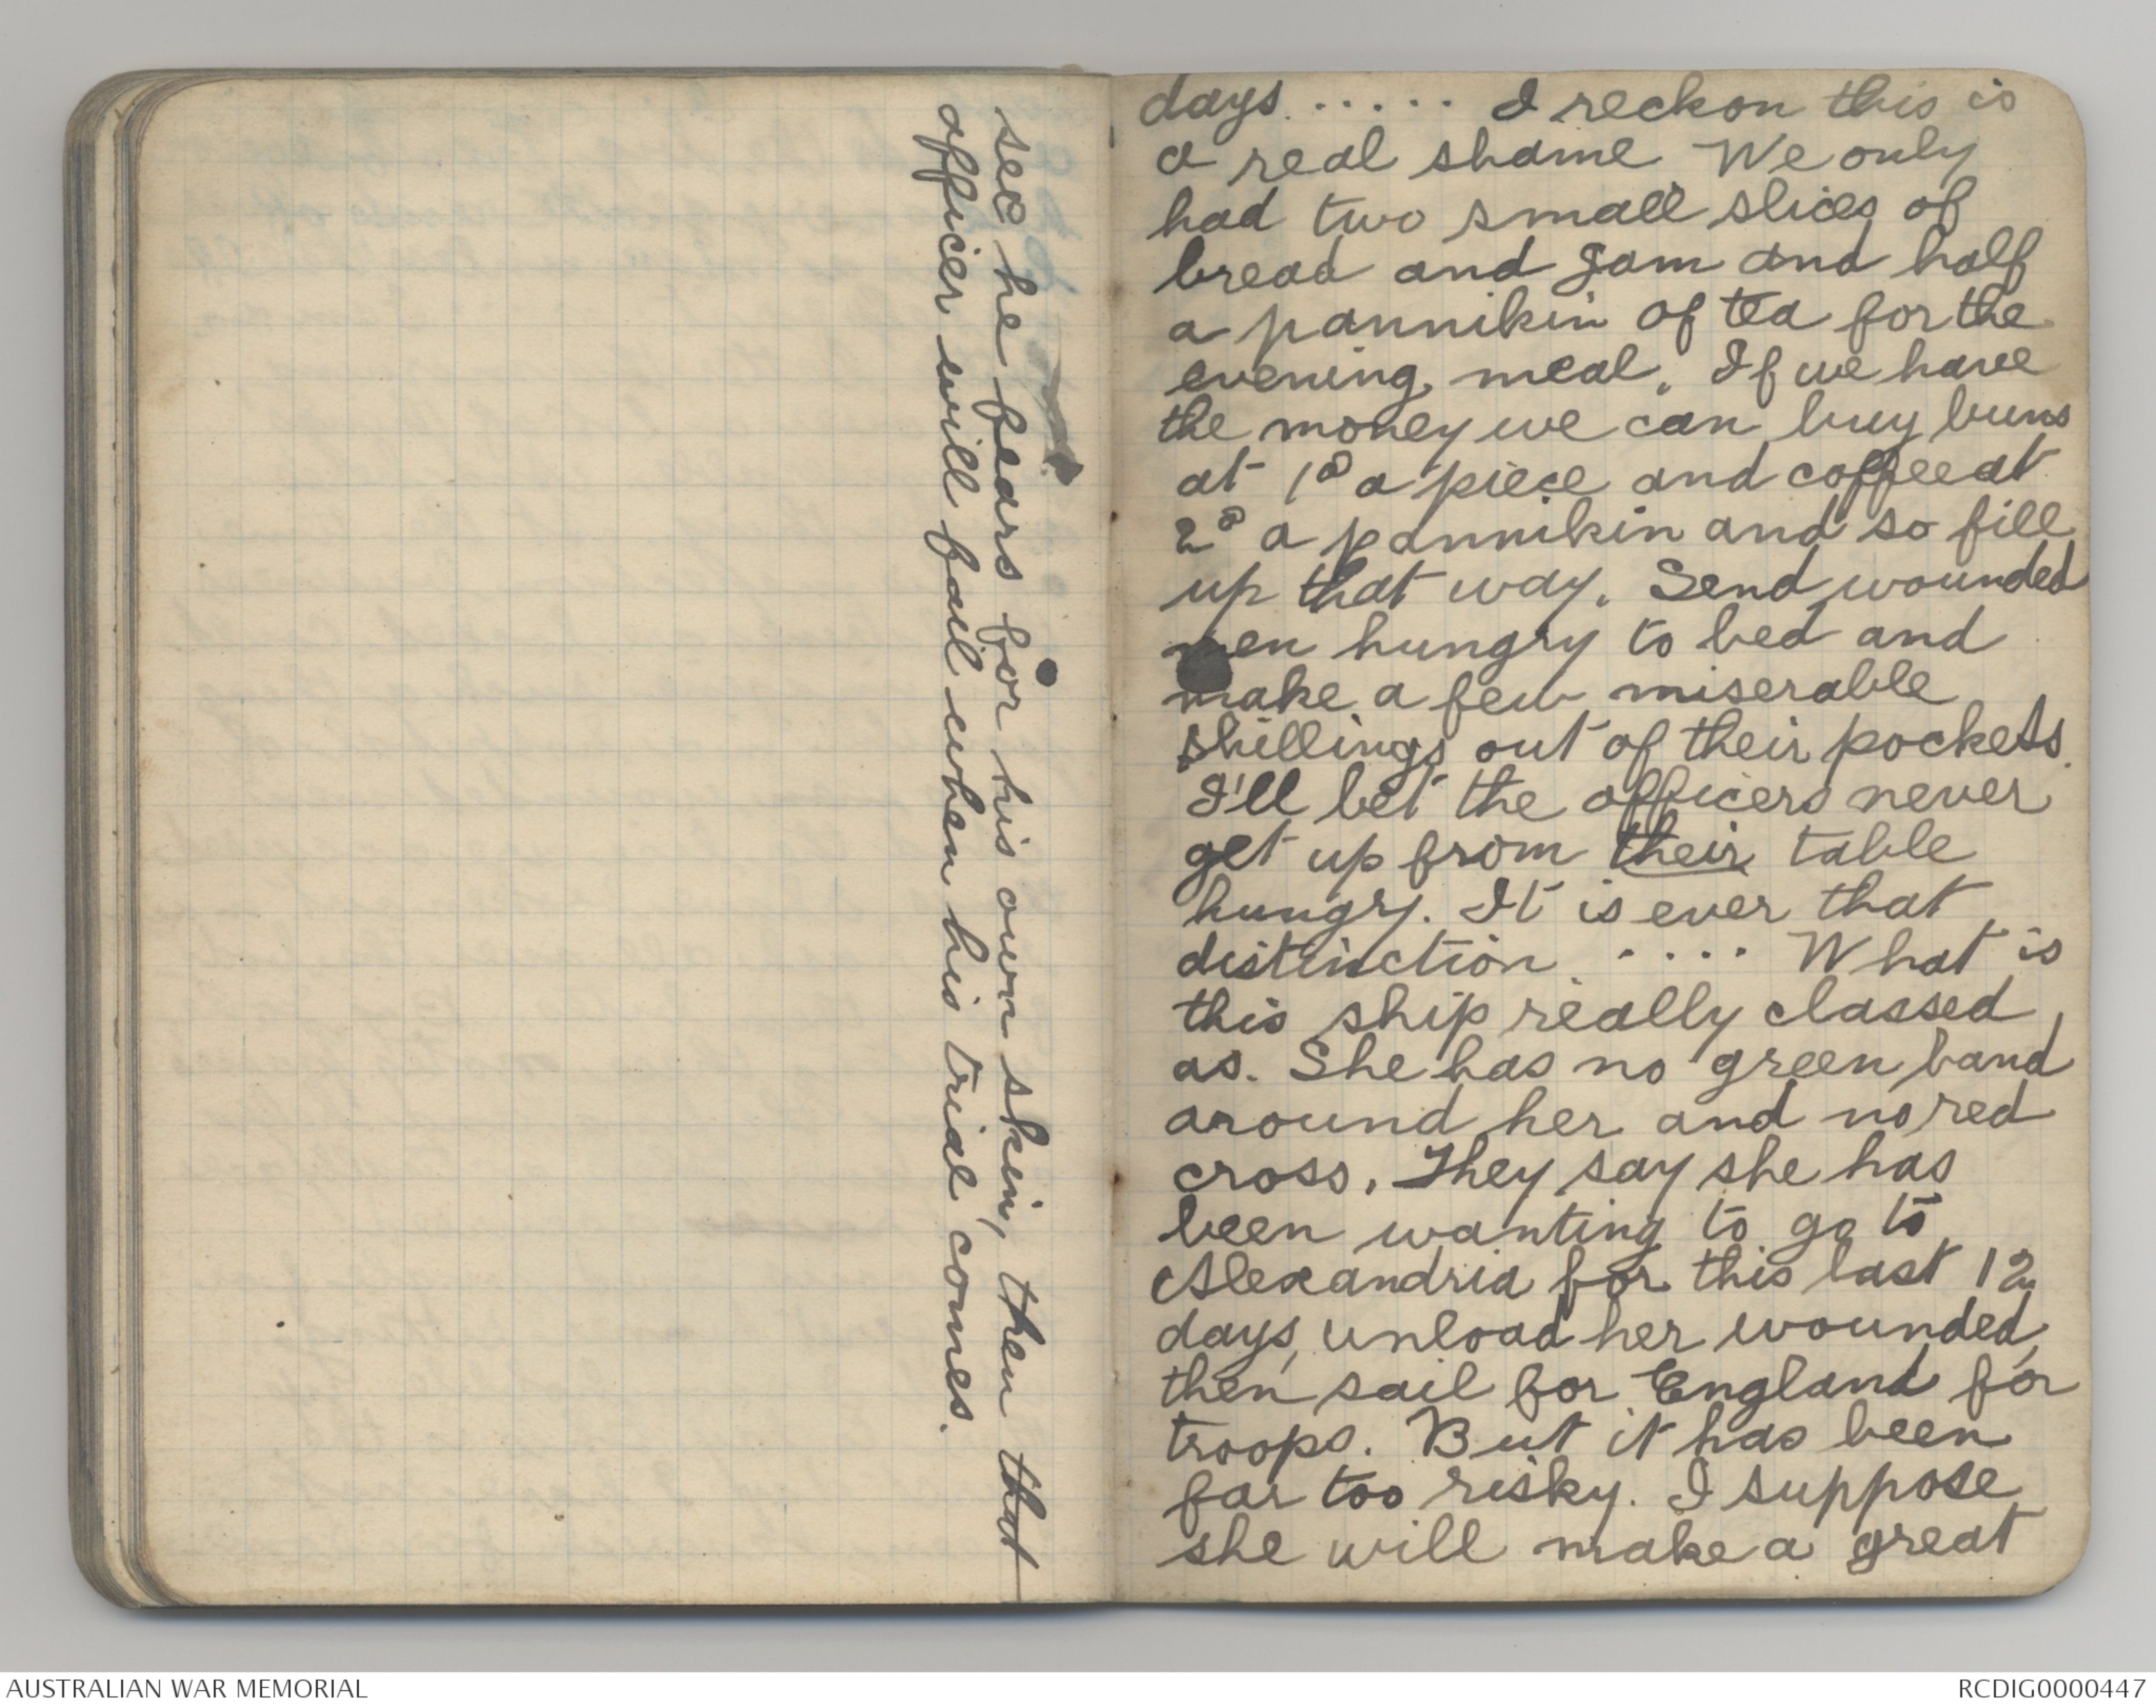 see he fears for his own skin, then that
officer will fail when his trial comes.
days ..... I reckon this is
a real shame. We only
had two small slices of
bread and jam and half
a pannikin of tea for the
evening meal. If we have
the money we can buy buns
at 1d a piece and coffee at
2d a pannikin and so fill
up that way. Send wounded
men hungry to bed and
make a few miserable
shillings out of their pockets.
I'll bet the officers never
get up from their table
hungry. It is ever that
distinction ..... What is
this ship really classed
as. She has no green band
around her and no red
cross. They say she has
been wanting to go to
Alexandria for this last 12
days, unload her wounded,
then sail for England for
troops. But it has been
far too risky. I suppose
she will make a great
AUSTRALIAN WAR MEMORIAL
RCDIG0000447